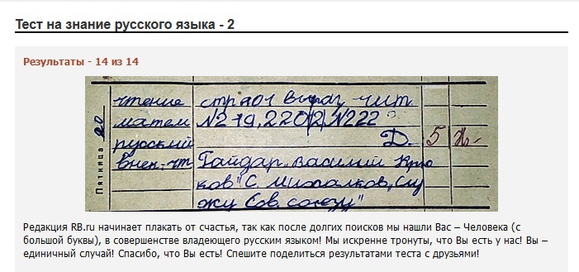 Тест на знание русского языка - 2
Результаты - 14 из 14
Пятница 20
чтение стр 201 выраз чит.
матем №219, 220(2), №222
русский Д. 5
внек. чт Гайдар. Василий Крю
ков" С. Михалков, Слу
жу Сов. союзу"
Редакция RB.ru начинает плакать от счастья, так как после долгих поисков мы нашли Вас – Человека (с
большой буквы), в совершенстве владеющего русским языком! Мы искренне тронуты, что Вы есть у нас! Вы –
единичный случай! Спасибо, что Вы есть! Спешите поделиться результатами теста с друзьями!